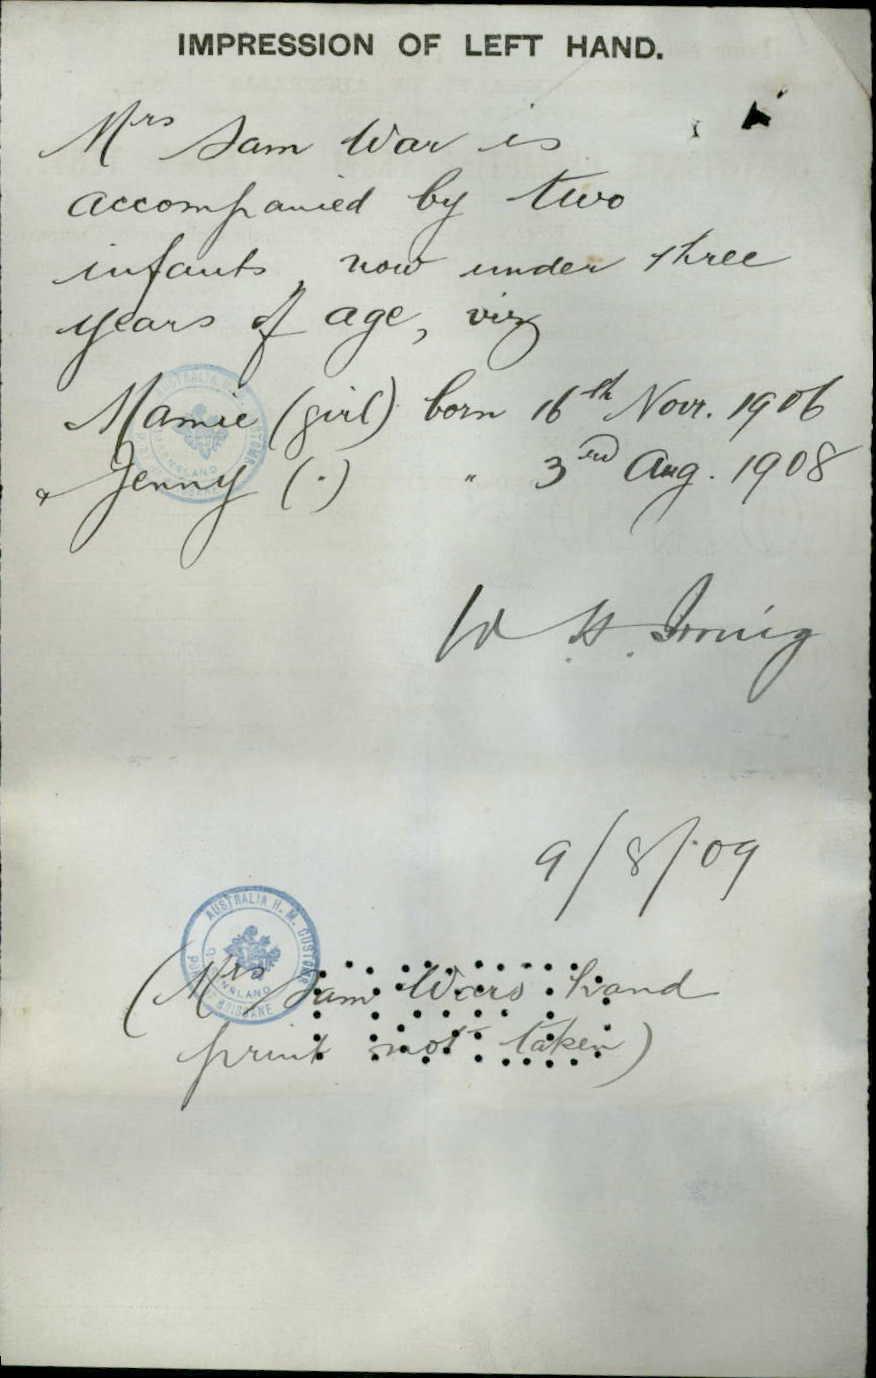 IMPRESSION OF LEFT HAND.
Mrs Sam War is
accompanied by two
infants, now under three
years of age, viz
Mamie (girl) born 16th Novr. 1906
& Jenny (") " 3rd Aug. 1908
W. H. Irving
9/8/09
AUSTRALIA H. M. CUSTOMS
QUEENSLAND
PORT BRISBANE
(Mrs Sam War's hand
print not taken)